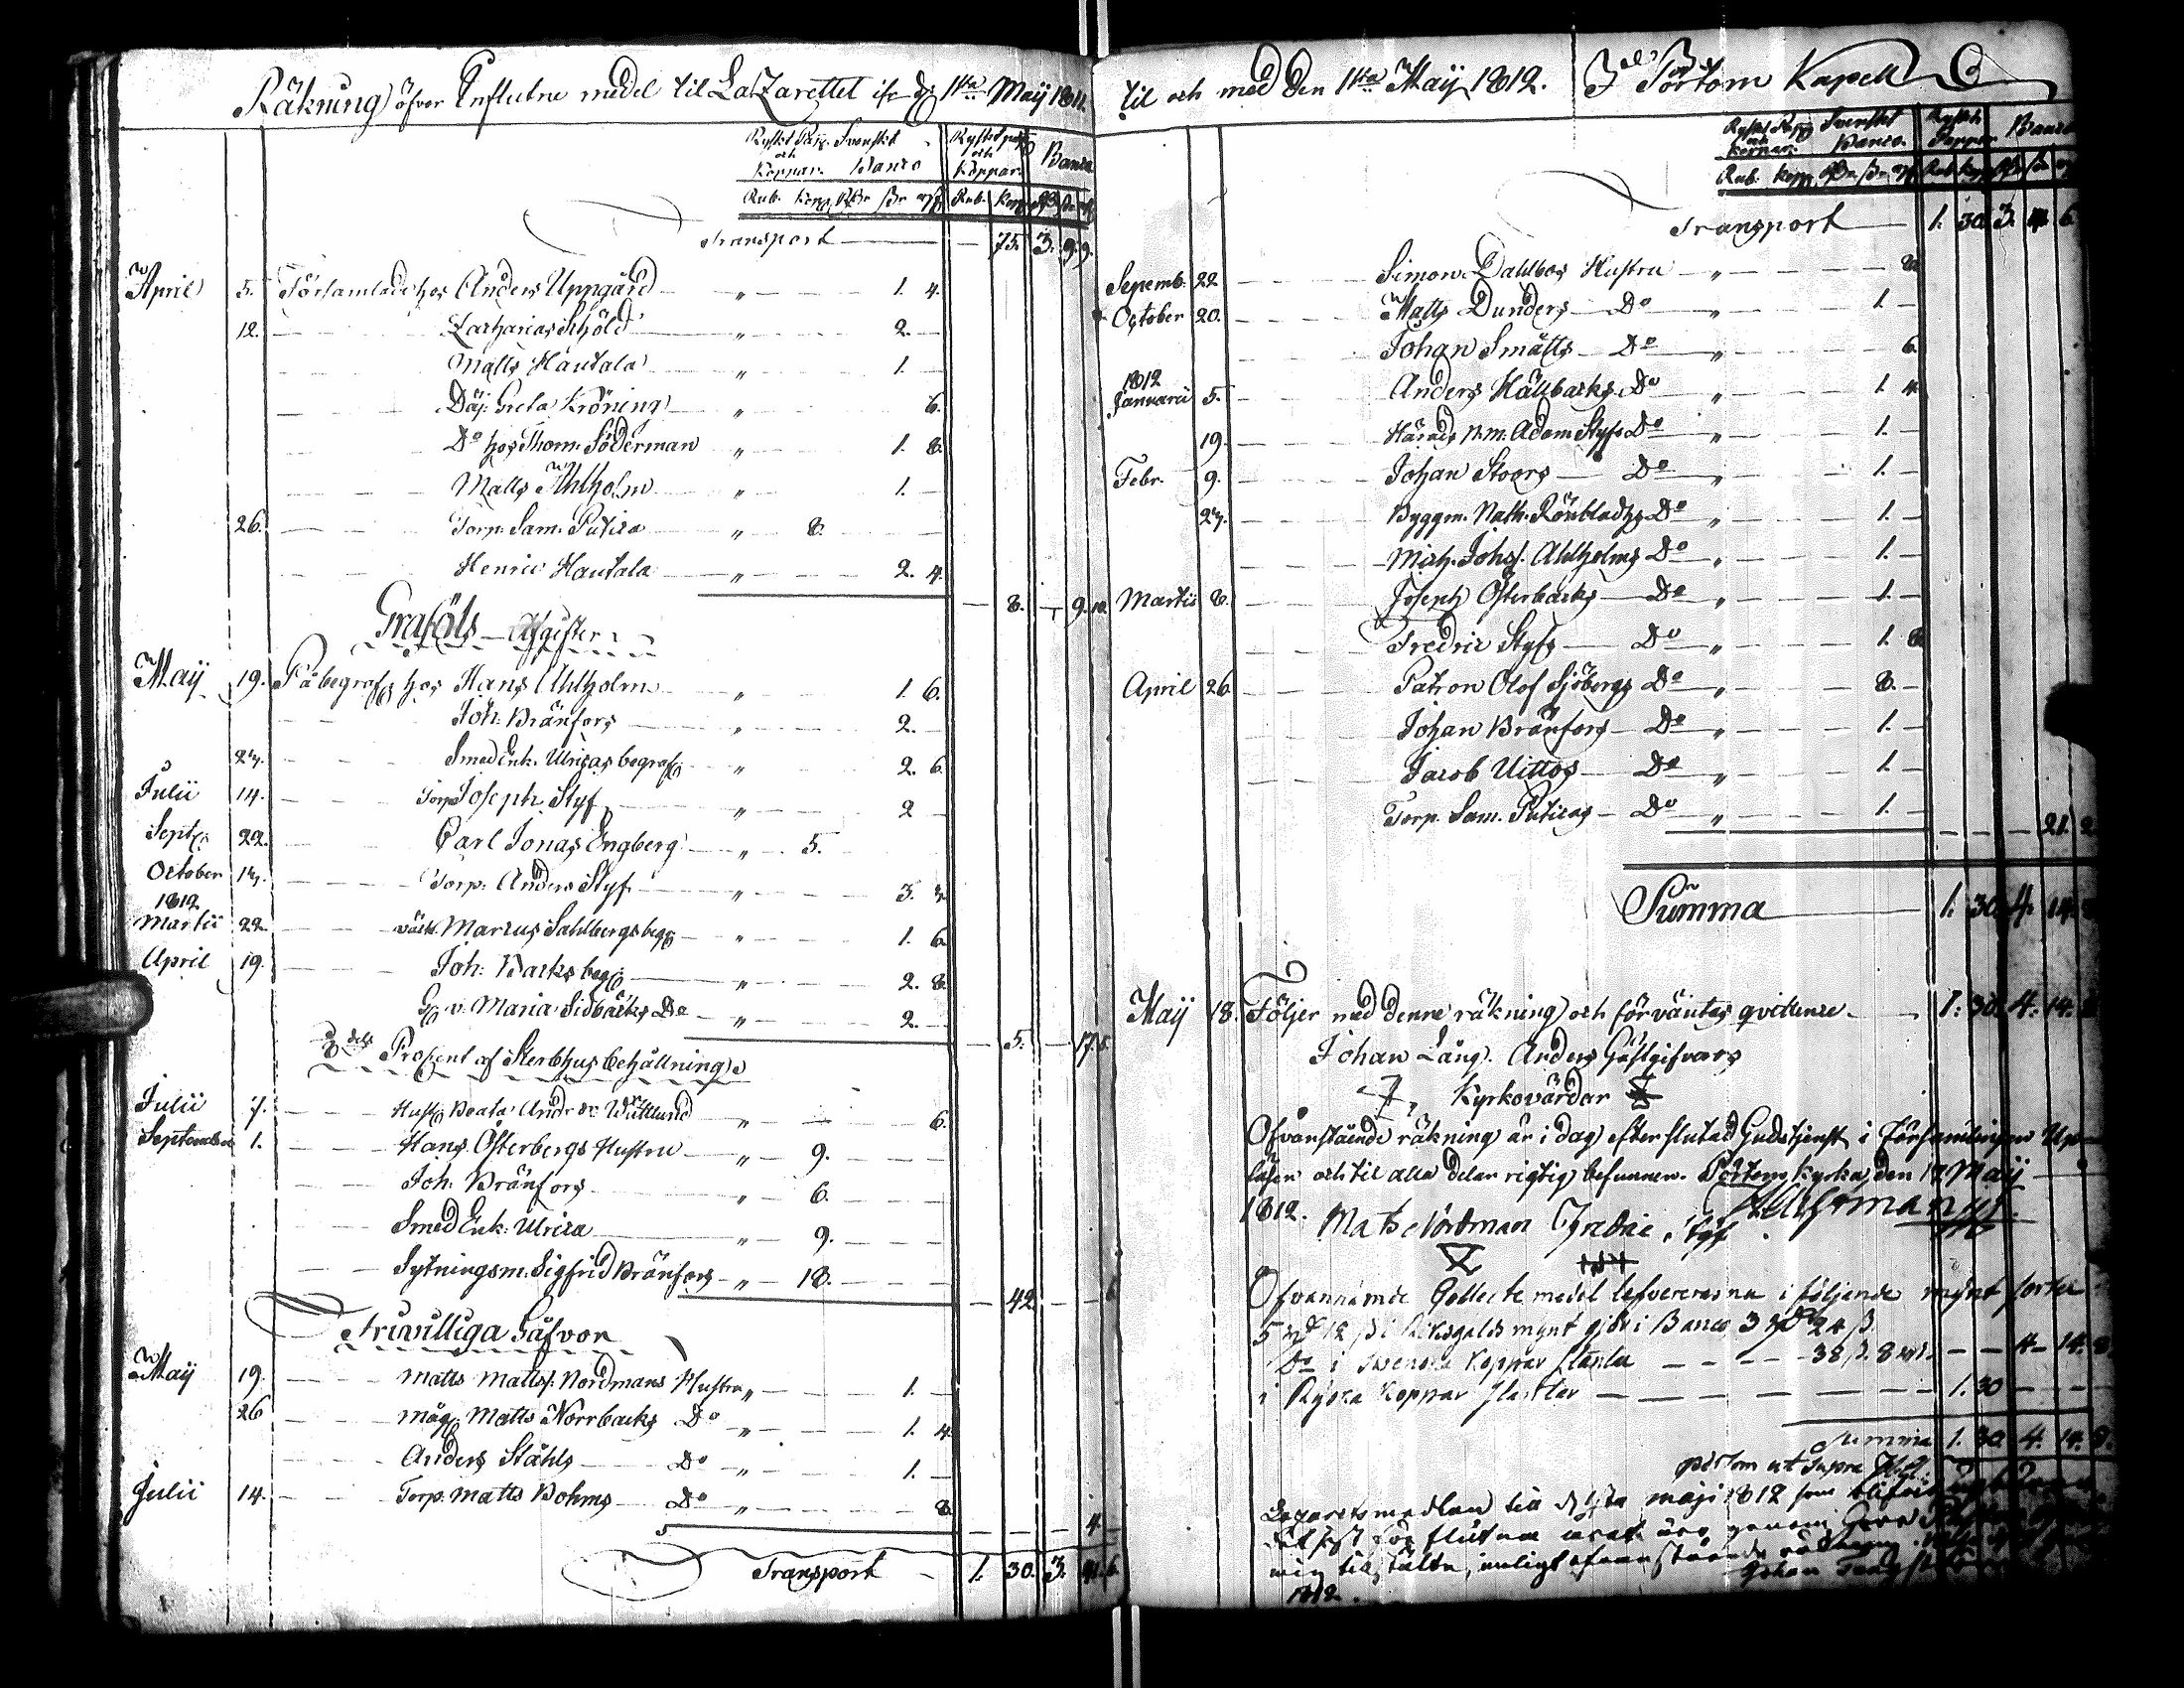 Räkning öfver Influtne medel til Lazarettet ifr. d. 1sta Maÿ 1811.
Ryskt Papp. Svenskt Ryskt papp Banco
och och
Koppar. Banco Koppar.
Rub. Kop. Rdr ßr rst Rub. Kop. Rdr ßr rst
Transport — 75. 3. 9. 9.
April 5. Församlade hos Anders Uppgård " 1. 4.
12. Zacharias Sköld " 2. —
Matts Hautala " 1. —
Däj. Greta Kröning " 6.
Do hos Thom. Söderman " 1. 8.
Matts Ahlholm " 1. —
26. Torp. Sam. Putica " 8. —
Henric Hautala " 2. 4.
— 8. — 9. 10.
Graföls Afgifter
Maÿ 19. På begrafg hos Hans Ahlholm " 1. 6.
Joh. Bränfors " 2. —
27. Smed Enk. Ulricas begrafg " 2. 6.
Julii 14. Torp. Joseph Styf " 2 —
Septr 22. Carl Jonas Engberg " 5.
October 17. Torp. Anders Styf " 3.
1812
Martii 22. Marcus Sahlbergs begg " 1. 6.
April 19. Joh. Backs begg " 2. 8.
Maria Sidbäcks Do " 2. —
— 5. — 17.
8dels Prosent af Sterbhus behållning
Julii 7. Hust. Beata Andr. dr Wittlund " 6.
September 1. Hans Österbergs Hustru " 9.
Joh. Bränfors " 6.
Smed Enk. Ulrica " 9.
Sytningsm. Sigfrid Bränfors " 18.
— 42 — — 6
Friwilliga Gåfvor
Maÿ 19. Matts Mattss. Nordmans Hustru " 1. —
26 måg. Matts Norrbacks Do " 1. 4.
Anders Ståhls Do " 1. —
Julii 14. Torp. Matts Bohms Do " 8.
— — — 4. —
Transport 1. 30. 3. 41. 6.
til och med den 1sta Maÿ 1812. I Pörtom Kapell
Ryskt Papp. Svenskt Ryskt Banco
och Koppar. Banco. Koppar
Rub. Kop. Rdr ßr rst Rub. Kop. Rdr ßr
Transport 1. 30. 3. 41. 6.
Septemb. 22. Simon Dahlbos Hustru " 8
October 20. Matts Dunders Do " 1. —
Johan Smätts Do " 6.
1812
Januarii 5. Anders Hällbacks Do " 1. 4.
19. Härads N.m. Adam Styfs Do " 1. —
Febr. 9. Johan Stoors Do " 1. —
27. Byggm. Nath. Rönblads Do " 1. —
Mich. Johss. Ahlholms Do " 1. —
Martii 8. Joseph Österbacks Do " 1. —
Fredric Styfs Do " 1. 8.
April 26. Patron Olof Sjöbergs Do " 8. —
Johan Bränfors Do " 1. —
Jacob Uittos Do " 1. —
Torp. Sam. Puticas Do " 1. —
— — — 21. 2
Summa 1. 30. 4. 14. 8
Maÿ 18. Följer med denne räkning och förväntas qvittence. 1. 30. 4. 14. 8
Johan Lång. Anders Gästgifvars
Kyrkovärdar
Ofvanstående räkning är i dag efter slutad Gudstjenst i Församlingen Up-
läsen och til alla delar rigtig befunnen. Pörtom Kyrka den 17 Maÿ
1812. Mats Nordman Fredric Styf
Ofvannämde Collecte medel lefvereras nu i följande mynt sorter
5 Rdr 12 ß i Riksgälds mynt gjör i Banco 3 Rdr 24 ß
Do i Svenska Koppar slantar — 38 ß. 8 rst. — — 4 — 14. 8.
i Ryska Koppar slantar — 1. 30 —
Summa 1. 30. 4. 14. 8.
Pörtom ut Supra
Lazarets medlen till d 1sta Maji 1812 som blifvit
genom
mig till, enligt ofvanstående räkning
1812.